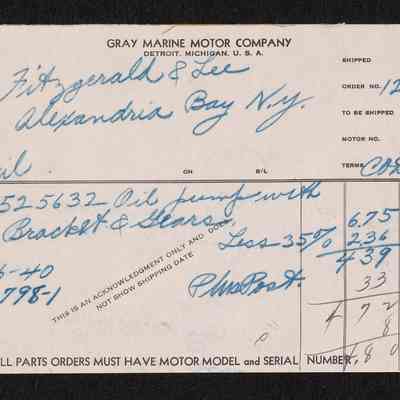 GRAY MARINE MOTOR COMPANY
DETROIT, MICHIGAN, U. S. A.
SHIPPED
Fitzgerald & Lee
ORDER NO. 12
Alexandria Bay N.Y.
TO BE SHIPPED
MOTOR NO.
ON B/L
TERMS COD
525632 Oil pump with
Bracket & Gears. 6.75
Less 35% 2.36
4 39
6-40
Plus Post. 33
798-1
4 72
THIS IS AN ACKNOWLEDGMENT ONLY AND DOES
NOT SHOW SHIPPING DATE
8
4.80
LL PARTS ORDERS MUST HAVE MOTOR MODEL and SERIAL NUMBER.